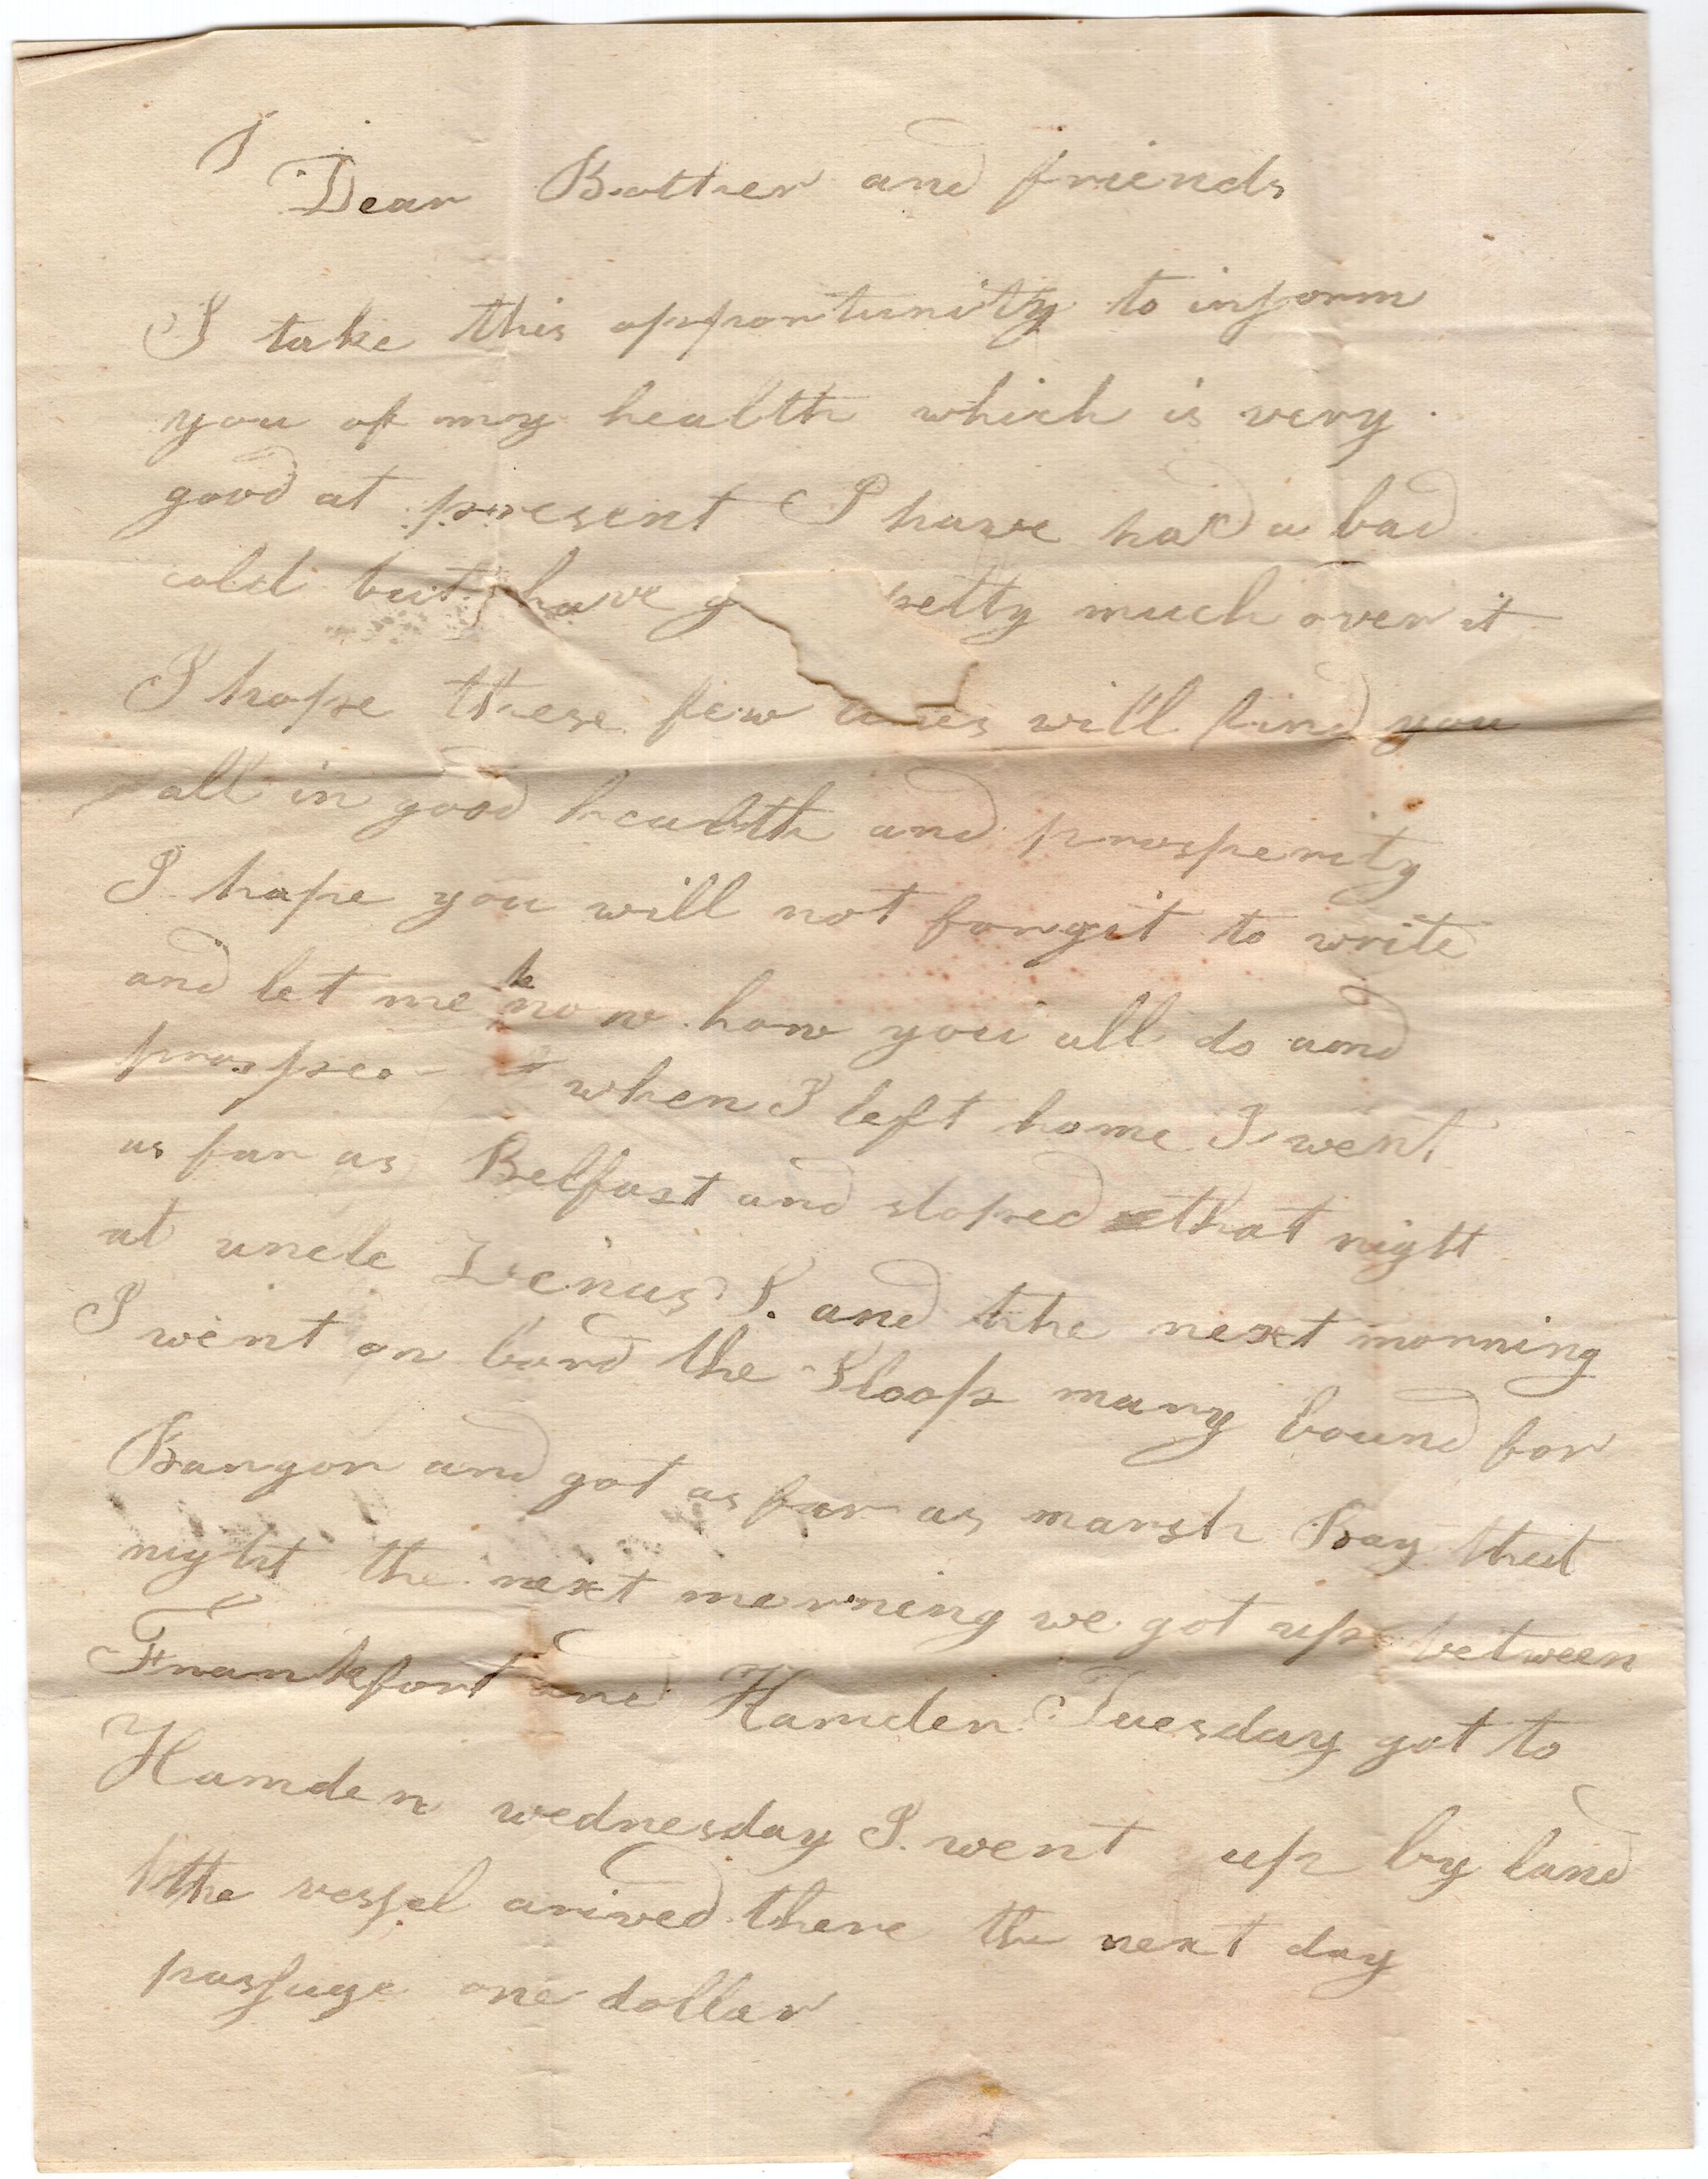 Dear Brother and friends
I take this opportunity to inform
you of my health which is very
good at present I have had a bad
cold but have g retty much over it
I hope these few lines will find you
all in good heatlth and prosperity
I hope you will not forgit to write
and let me know how you all do and
prosper when I left home I went
as far as Belfast and stoped that night
at uncle S. and the next morning
I went on bord the Sloop mary bound for
Bangor and got as far as marsh Bay that
night the next morning we got up between
Frankfort and Hamden Tuesday got to
Hamden wednesday I went up by land
the vessel arived there the next day
passage one dollar